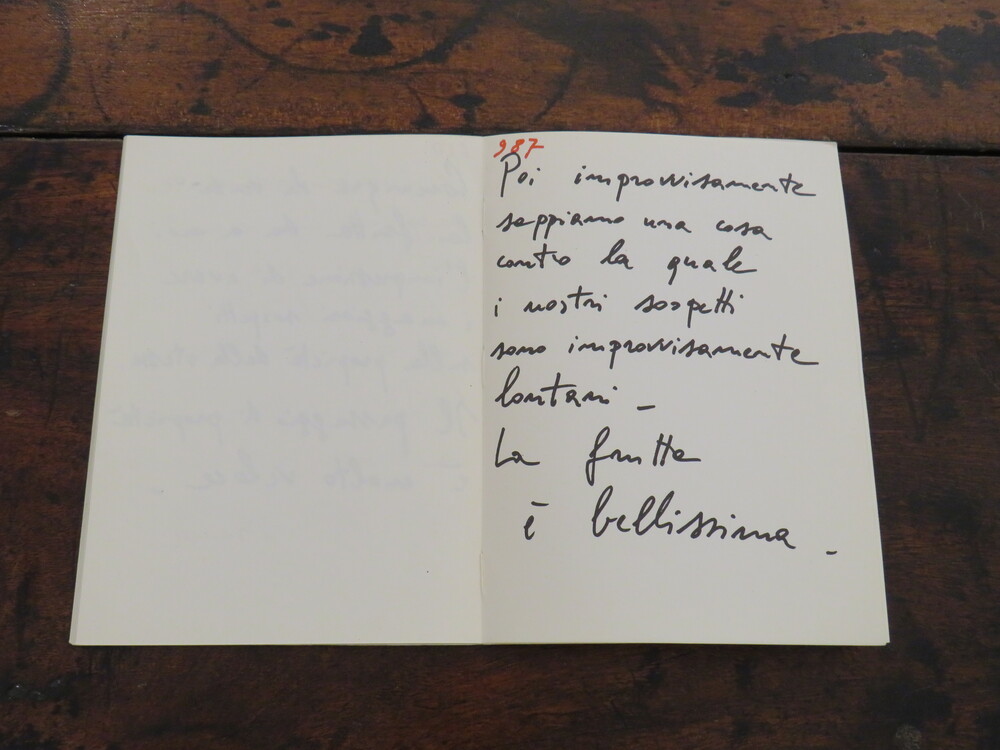 987
Poi improvvisamente
seppiamo una cosa
contro la quale
i nostri sospetti
sono improvvisamente
lontani _
La frutta
è bellissima _